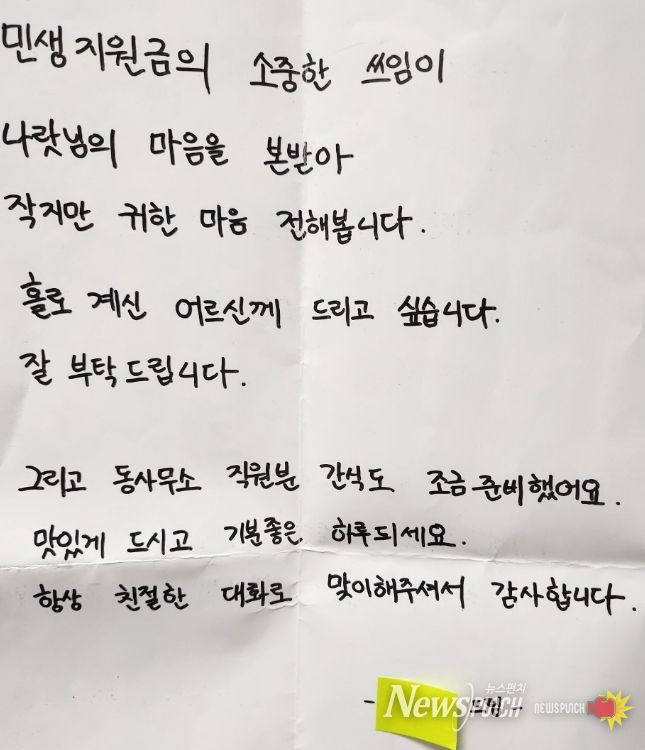 민생지원금의 소중한 쓰임이
나랏님의 마음을 본받아
작지만 귀한 마음 전해봅니다.
홀로 계신 어르신께 드리고 싶습니다.
잘 부탁드립니다.
그리고 동사무소 직원분 간식도 조금 준비했어요.
맛있게 드시고 기분좋은 하루되세요.
항상 친절한 대화로 맞이해주셔서 감사합니다.
뉴스펀치
- NewsPUNCH 드림 - NEWSPUNCH